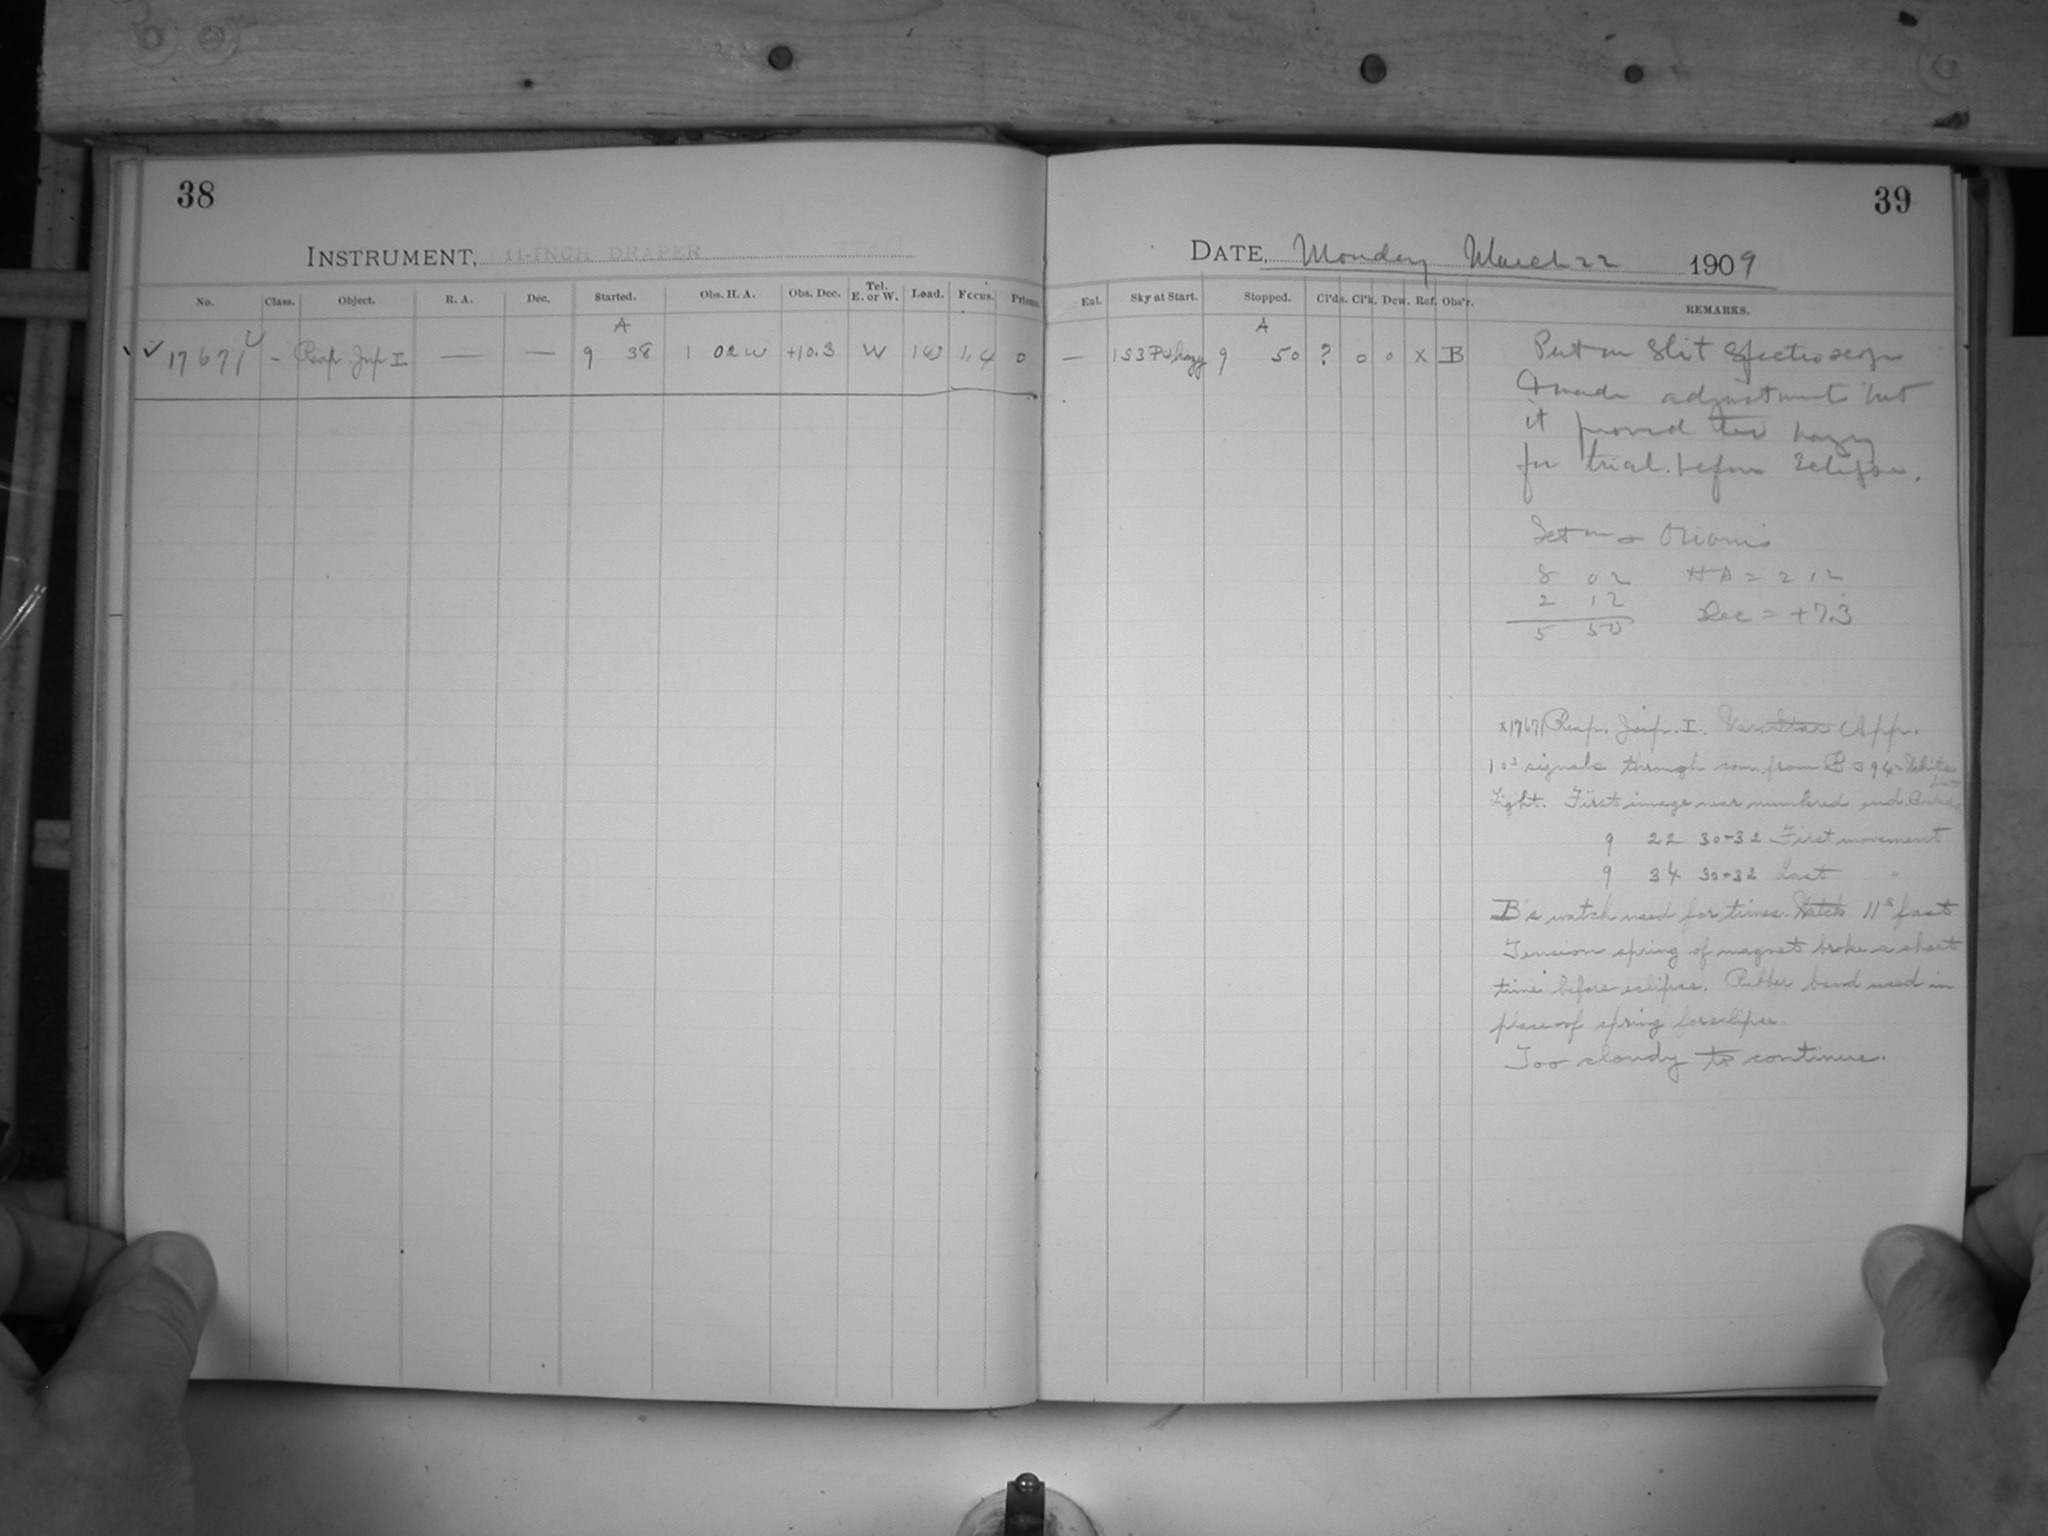 38
INSTRUMENT, 11-INCH DRAPER
No. Class. Object. R. A. Dec. Started. Obs. H. A. Obs. Dec. Tel. E. or W. Load. Focus. Prisms.
A
17671 – Reap. Jup I — — 9 38 1 02 W +10.3 W 1.4 0
39
DATE, Monday March 22 1909
Ent. Sky at Start. Stopped. Cl'ds. Cl'k. Dew. Ref. Obs'r. REMARKS.
A
— hazy 9 50 ? 0 0 x B
Put on Slit Spectroscope
& made adjustment but
it proved too hazy
for trial before Eclipse.
Set on α Orionis
8 02 HA = 2 12
2 12 Dec = +7.3
5 50
x17671 Reap. Jup. I. App.
10s signals through com. from B 394 - White
Light. First image near numbered end.
9 22 30-32 First movement
9 34 30-32 Last "
B's watch used for times. 11s fast
Tension spring of magnet broke a short
time before eclipse. Rubber band used in
place of spring for eclipse.
Too cloudy to continue.